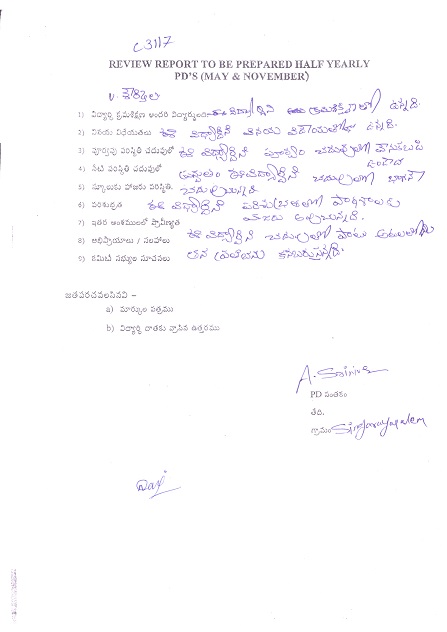 C3117
REVIEW REPORT TO BE PREPARED HALF YEARLY
PD'S (MAY & NOVEMBER)
V.
1) విద్యార్థి క్రమశిక్షణ అందరి విద్యార్థులు ఈ విద్యార్థిని క్రమశిక్షణలో ఉన్నది.
2) వినయ విధేయతలు ఈ విద్యార్థిని వినయ విదేయతతో ఉన్నది.
3) పూర్వపు పరిస్థితి చదువులో ఈ విద్యార్థిని పూర్వం చదువులో
4) నేటి పరిస్థితి చదువులో ప్రస్తుతం ఈ విద్యార్థిని చదువులలో బాగానే
5) స్కూలుకు హాజరు పరిస్థితి. చదువుచున్నది
6) పరిశుభ్రత ఈ విద్యార్థిని పరిశుభ్రతలో
7) ఇతర అంశములలో ప్రావీణ్యత
8) అభిప్రాయాలు / సలహాలు ఈ విద్యార్థిని చదువులతో పాటు ఆటలలో
9) కమిటి సభ్యుల సూచనలు తన
జతపరచవలసినవి –
a) మార్కుల పత్రము
b) విద్యార్థి దాతకు వ్రాసిన ఉత్తరము
A. Srinivas
PD సంతకం
తేది.
గ్రామం Singarayapalem